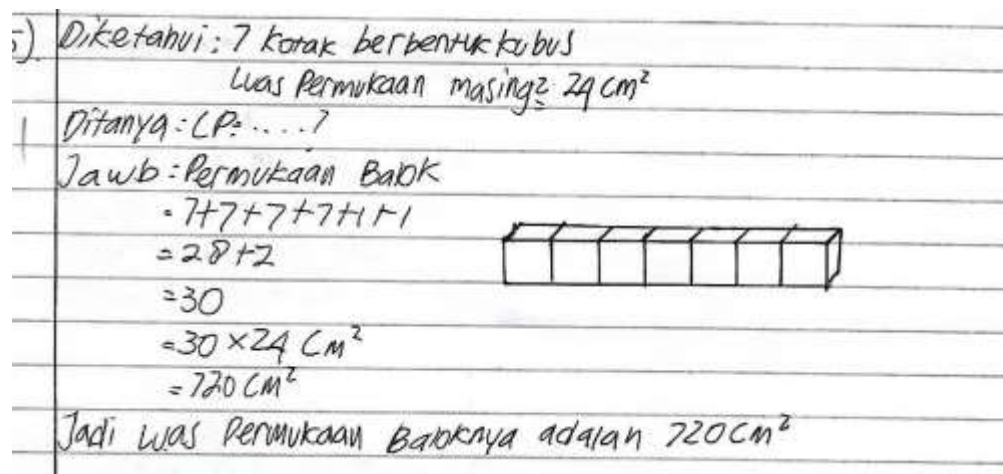 5). Diketahui: 7 kotak berbentuk kubus
Luas Permukaan masing2 = 24 cm²
Ditanya: LP = ....?
Jawb: Permukaan Balok
= 7+7+7+7+1+1
= 28+2
= 30
= 30 × 24 cm²
= 720 cm²
Jadi Luas Permukaan Baloknya adalah 720 cm²